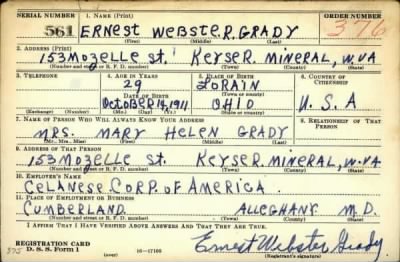 SERIAL NUMBER 1. NAME (Print) ORDER NUMBER
561 ERNEST WEBSTER. GRADY 376
(First) (Middle) (Last)
2. ADDRESS (Print)
153 MOZELLE St. KEYSER. MINERAL, W.VA
(Number and street or R. F. D. number) (Town) (County) (State)
3. TELEPHONE 4. AGE IN YEARS 5. PLACE OF BIRTH 6. COUNTRY OF CITIZENSHIP
29 LORAIN
DATE OF BIRTH (Town or county)
OCTOBER 14, 1911 OHIO U. S. A
(Exchange) (Number) (Mo.) (Day) (Yr.) (State or country)
7. NAME OF PERSON WHO WILL ALWAYS KNOW YOUR ADDRESS 8. RELATIONSHIP OF THAT PERSON
MRS. MARY HELEN GRADY
(Mr., Mrs., Miss) (First) (Middle) (Last)
9. ADDRESS OF THAT PERSON
153 MOZELLE St. KEYSER. MINERAL, W.VA
(Number and street or R. F. D. number) (Town) (County) (State)
10. EMPLOYER'S NAME
CELANESE CORP. OF AMERICA.
11. PLACE OF EMPLOYMENT OR BUSINESS
CUMBERLAND ALLEGHANY M.D.
(Number and street or R. F. D. number) (Town) (County) (State)
I AFFIRM THAT I HAVE VERIFIED ABOVE ANSWERS AND THAT THEY ARE TRUE.
REGISTRATION CARD
D. S. S. Form 1 (over) 16—17105 Ernest Webster Grady
(Registrant's signature)